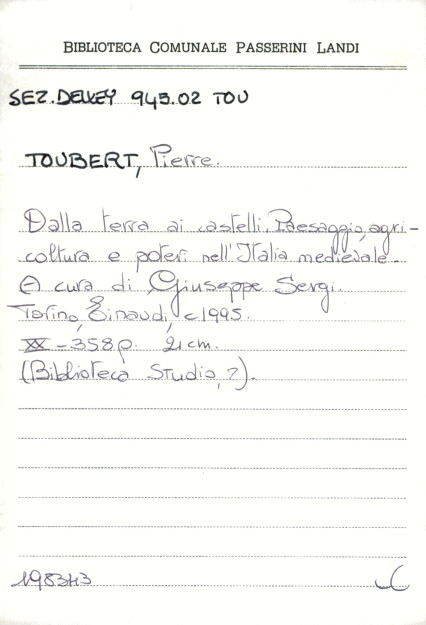 BIBLIOTECA COMUNALE PASSERINI LANDI
SEZ. DEWEY 945.02 TOU
TOUBERT, Pierre.
Dalla terra ai castelli. Paesaggio, agri-
coltura e poteri nell'Italia medievale.
A cura di Giuseppe Sergi.
Torino, Einaudi, c1995.
XX - 358 p. 21 cm.
(Biblioteca Studio, 2).
198343